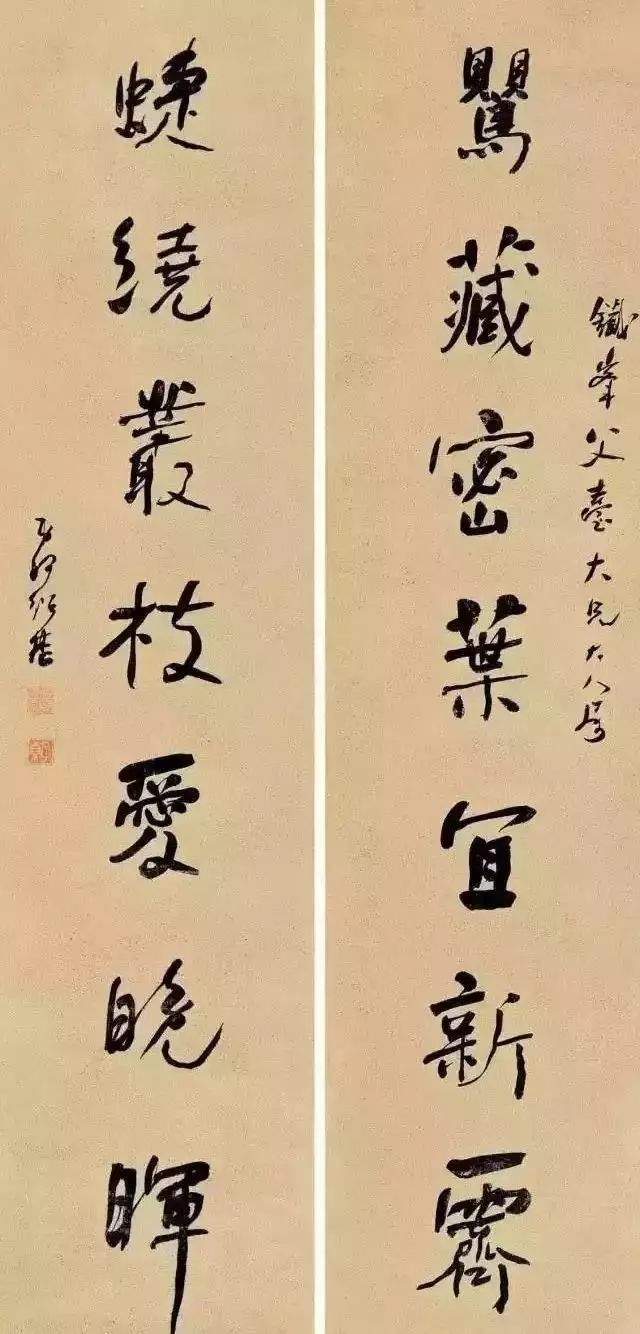 鐵峯父臺大兄大人屬
鸎藏密葉宜新霽
蜨繞叢枝愛晚暉
何紹基